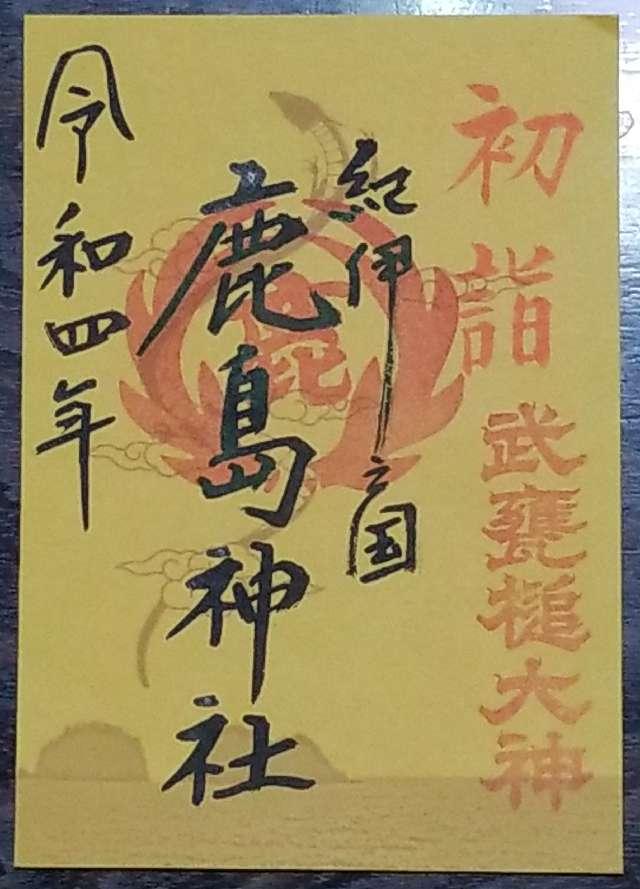 初詣
武甕槌大神
紀伊之国
鹿島神社
令和四年